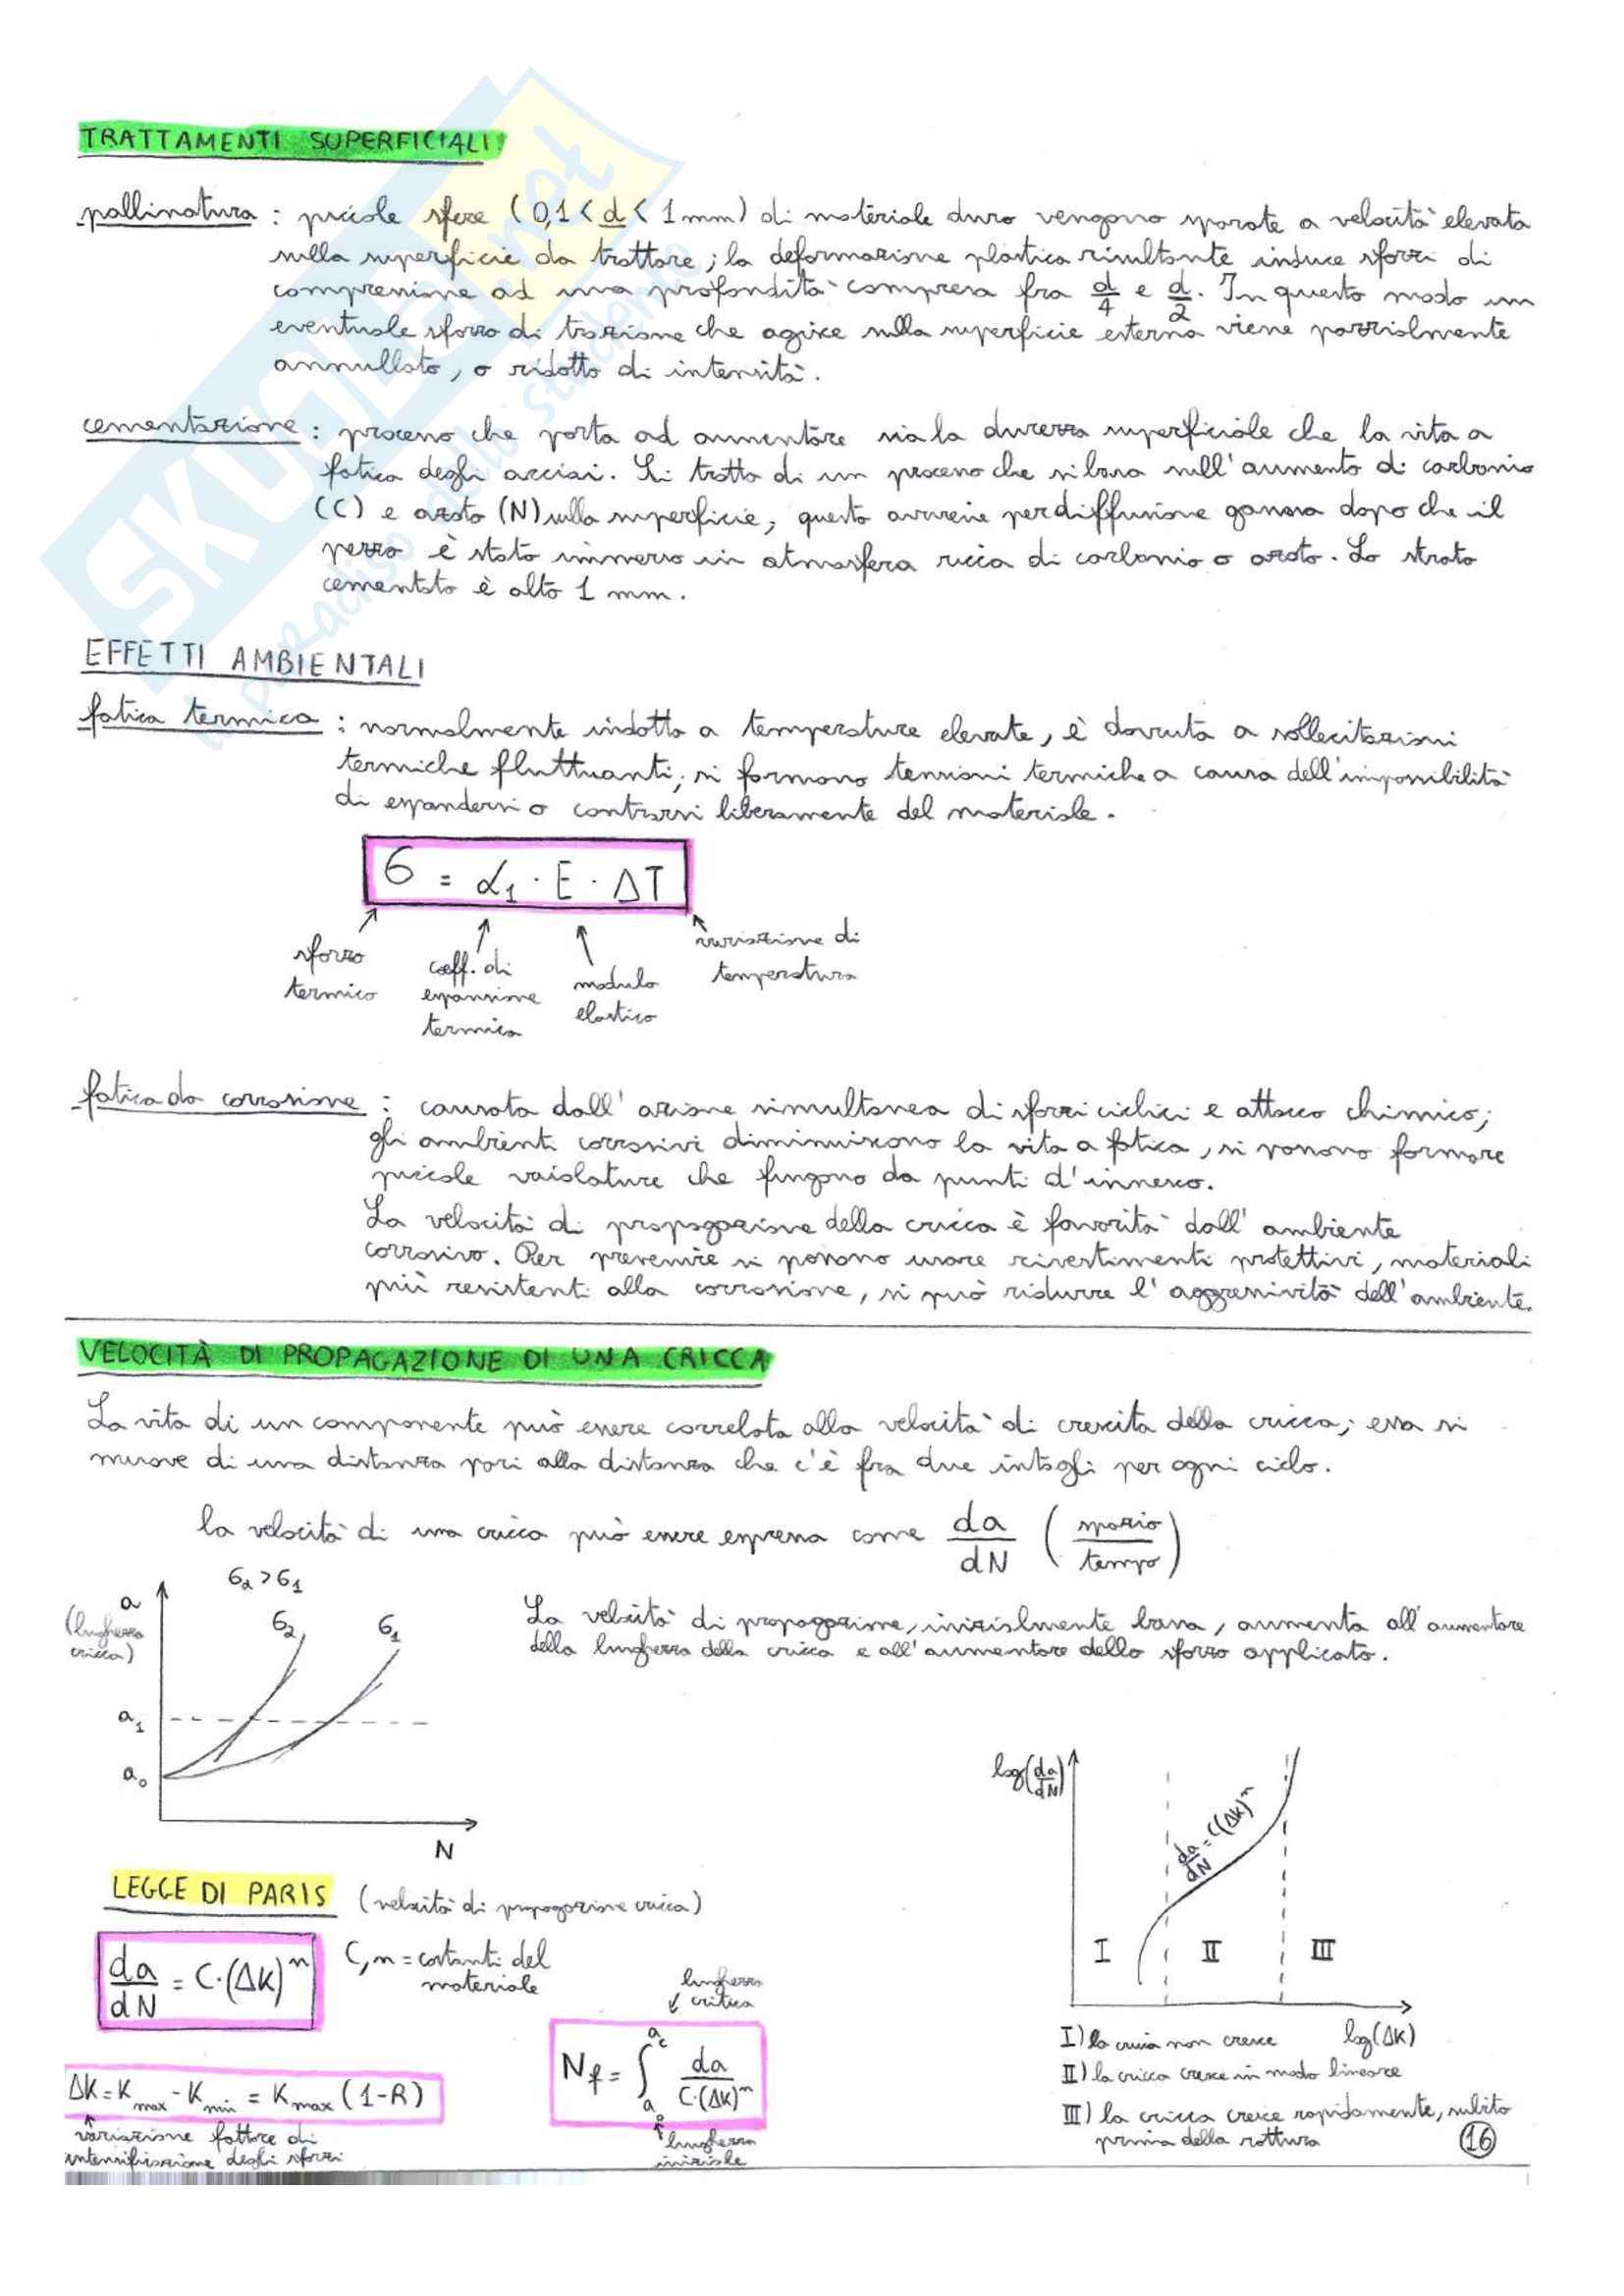 TRATTAMENTI SUPERFICIALI
pallinatura : piccole sfere (0,1 < d < 1 mm) di materiale duro vengono sparate a velocità elevata
sulla superficie da trattare; la deformazione plastica risultante induce sforzi di
compressione ad una profondità compresa fra d/4 e d/2. In questo modo un
eventuale sforzo di trazione che agisce sulla superficie esterna viene parzialmente
annullato, o ridotto di intensità.
cementazione : processo che porta ad aumentare sia la durezza superficiale che la vita a
fatica degli acciai. Si tratta di un processo che si basa sull'aumento di carbonio
(C) e azoto (N) sulla superficie; questo avviene per diffusione gassosa dopo che il
pezzo è stato immerso in atmosfera ricca di carbonio o azoto. Lo strato
cementato è alto 1 mm.
SKUOLA.net
il paradiso dello studente
EFFETTI AMBIENTALI
fatica termica : normalmente indotta a temperature elevate, è dovuta a sollecitazioni
termiche fluttuanti; si formano tensioni termiche a causa dell'impossibilità
di espandersi o contrarsi liberamente del materiale.
σ = α₁ · E · ΔT
sforzo termico
coeff. di espansione termica
modulo elastico
variazione di temperatura
fatica da corrosione : causata dall'azione simultanea di sforzi ciclici e attacco chimico;
gli ambienti corrosivi diminuiscono la vita a fatica, si possono formare
piccole vaiolature che fungono da punti d'innesco.
La velocità di propagazione della cricca è favorità dall'ambiente
corrosivo. Per prevenire si possono usare rivestimenti protettivi, materiali
più resistenti alla corrosione, si può ridurre l'aggressività dell'ambiente.
VELOCITÀ DI PROPAGAZIONE DI UNA CRICCA
La vita di un componente può essere correlata alla velocità di crescita della cricca; essa si
muove di una distanza pari alla distanza che c'è fra due intagli per ogni ciclo.
la velocità di una cricca può essere espressa come da/dN (spazio/tempo)
σ₂ > σ₁
a
(lunghezza cricca)
σ₂
σ₁
a₁
a₀
N
La velocità di propagazione, inizialmente bassa, aumenta all'aumentare
della lunghezza della cricca e all'aumentare dello sforzo applicato.
log(da/dN)
da/dN = C(ΔK)ⁿ
I
II
III
log(ΔK)
I) la cricca non cresce
II) la cricca cresce in modo lineare
III) la cricca cresce rapidamente, subito
prima della rottura
LEGGE DI PARIS (velocità di propagazione cricca)
da/dN = C·(ΔK)ⁿ
C, n = costanti del
materiale
ΔK = Kmax - Kmin = Kmax (1-R)
variazione fattore di
intensificazione degli sforzi
lunghezza
critica
Nf = ∫ₐ₀^ac da / C·(ΔK)ⁿ
lunghezza
iniziale
16